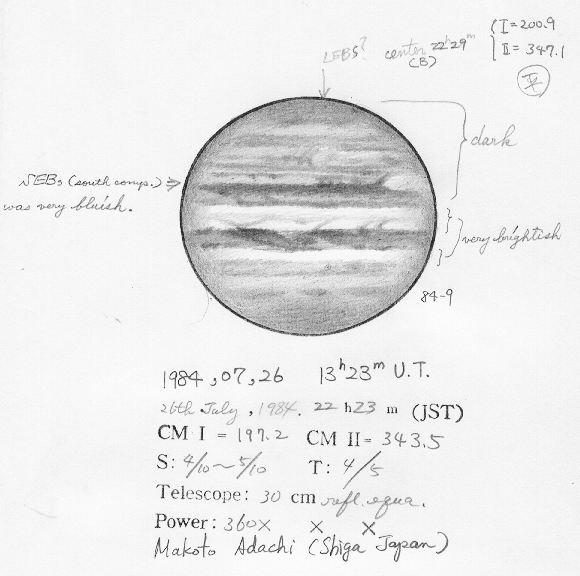 I = 200.9
LEBS? center 22h29m II = 347.1
(B)
IV
dark
SEBs (south comp.) ⇒
was very bluish.
very brightish
84-9
1984, 07, 26 13h23m U.T.
26th July, 1984. 22 h23 m (JST)
CM I = 197.2 CM II= 343.5
S: 4/10~5/10 T: 4/5
Telescope: 30 cm refl. equa.
Power: 360× × ×
Makoto Adachi (Shiga Japan)